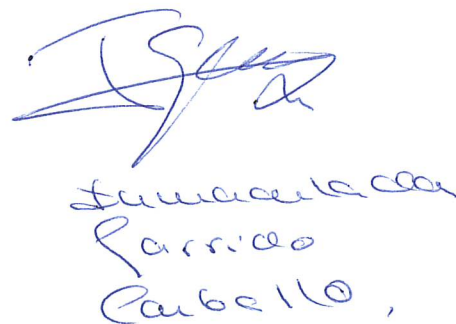 Inmaculada
Garrido
Carballo,